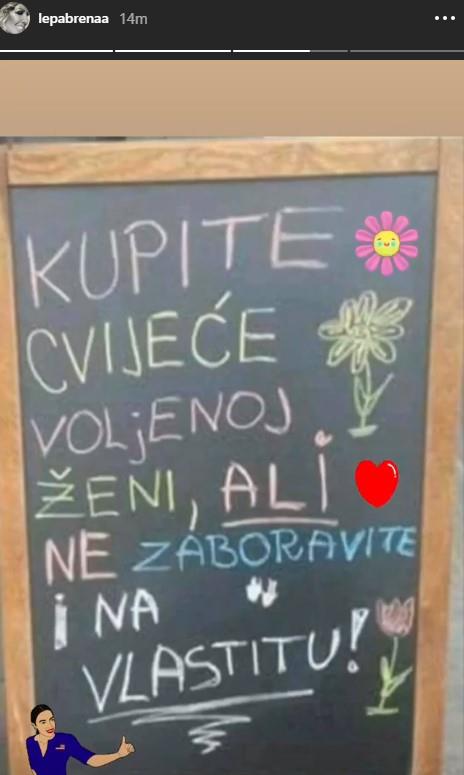 lepabrenaa 14m
KUPITE
CVIJEĆE
VOLjENOJ
ŽENI, ALI
NE ZABORAVITE
i NA
VLASTITU!